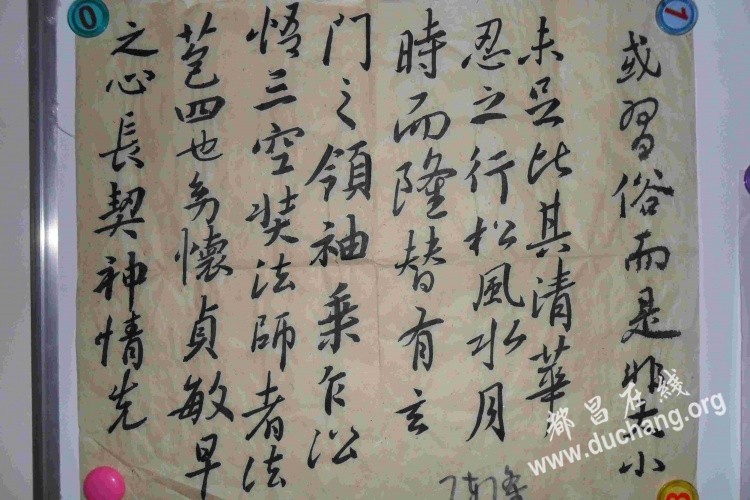 或習俗而是非大小
未足比其清華
忍之行松風水月
時而隆替有玄
門之領袖乘
悟三空奘法師者法
苞四也多懷貞敏早
之心長契神情先
都昌在线
www.duchang.org
0
1